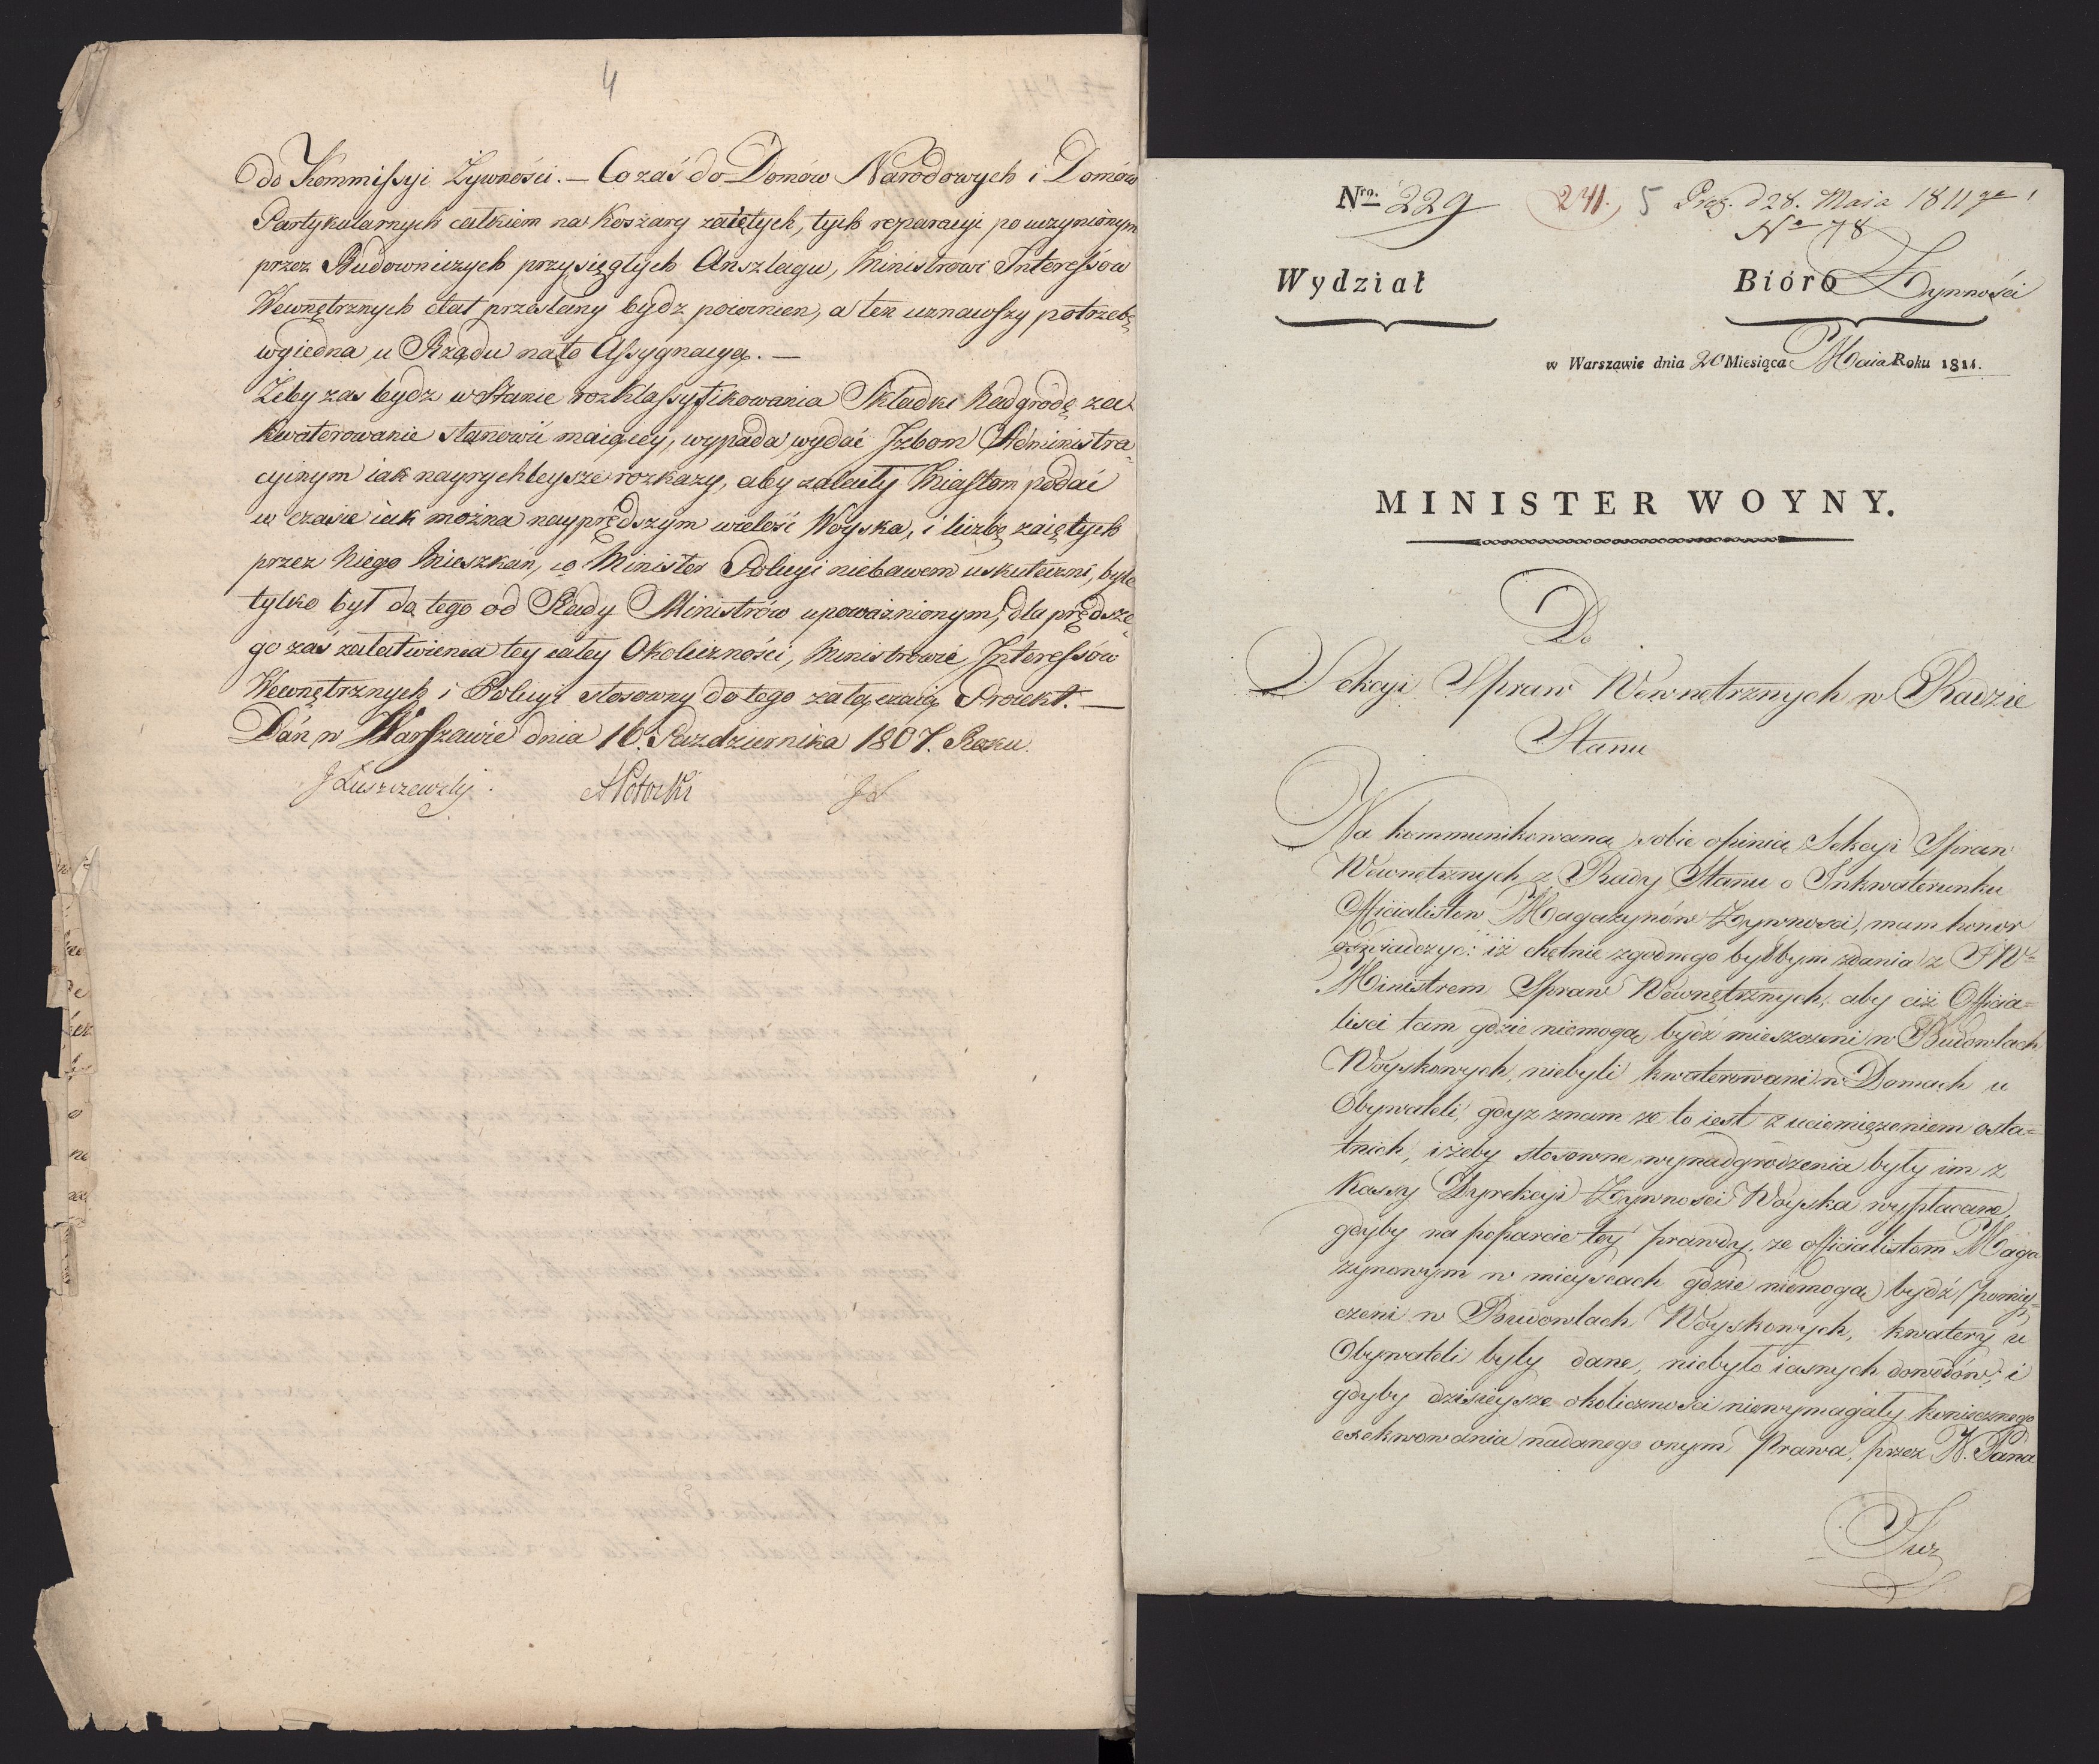 4
do Kommissyi Żywności. — Co zaś do Domów Narodowych i Domów
Partykularnych całkiem na Koszary zaiętych, tych reparacyi po uczynionym
przez Budowniczych przysięgłych Anszlagu, Ministrowi Interessów
Wewnętrznych etat przesłany bydz powinien, a ten uznawszy potrzebę
wyiedna u Rządu na to Assygnacyą. —
Żeby zas bydz w Stanie rozklassyfikowania Składki Nadgrodę za
kwaterowanie stanowić maiącey, wypada wydać Izbom Administra-
cyinym iak nayrychleysze rozkazy, aby zaleciły Miastom podać
w czasie iak można nayprędszym wielość Woyska, i liczbę zaiętych
przez Niego Mieszkań, co Minister Policyi niebawem uskuteczni, byle
tylko był do tego od Rady Ministrów upoważnionym, dla prędsze-
go zaś załatwienia tey całey Okoliczności, Ministrowie Interessów
Wewnętrznych i Policyi stosowny do tego załączaią Proiekt. —
Dań w Warszawie dnia 16. Pazdziernika 1807. Roku.
J Łuszczewsky. APotocki
Nro. 229 241. 5 Prez. d 28. Maia 1811 go
No 78
Wydział Bióro Żywności
w Warszawie dnia 20 Miesiąca Maia Roku 1811.
MINISTER WOYNY.
Do
Sekcyi Spraw Wewnętrznych w Radzie
Stanu
Na kommunikowaną sobie opinią Sekcyi Spraw
Wewnętrznych z Rady Stanu o Inkwaterunku
Officialistow Magazynów Żywnosci, mam honor
oświadczyć: iż chętnie zgodnego byłbym zdania z JW
Ministrem Spraw Wewnętrznych, aby ciż Officia=
lisci tam gdzie niemogą bydź mieszczeni w Budowlach
Woyskowych, niebyli kwaterowani w Domach u
Obywateli, gdyz znam ze to iest z uciemiężeniem osta=
tnich, iżeby stosowne wynadgrodzenia były im z
Kassy Dyrekcyi Żywnosci Woyska wypłacane,
gdyby na poparcie tey prawdy, ze officialistom Maga
zynowym w mieyscach gdzie niemogą bydź pomię=
czeni w Budowlach Woyskowych, kwatery u
Obywateli były dane, niebyło iasnych dowodów, i
gdyby dzisieysze okolicznosci niewymagały koniecznego
exekwowania nadanego onym Prawa, przez N. Pana